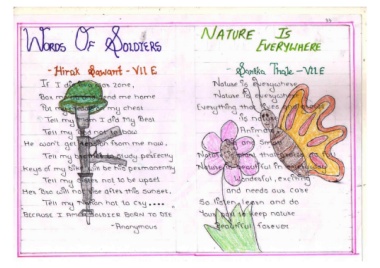 WORDS OF SOLDIERS
- Hirak Sawant - VII E
If I die in a war zone,
Box me and send me home
Put my on my chest
Tell my mom I did my Best
Tell my not to bow
He won't get tension from me now.
Tell my to study perfectly
Keys of my bike will be his permanently
Tell my not to be upset
Her Bro will not rise after this sunset.
Tell my Nation not to cry....
BECAUSE I AM A SOLDIER BORN TO DIE
-Anonymous
NATURE IS
EVERYWHERE
- Sanika Thale - VII E
Nature is everywhere
Nature is everywhere
Everything that
is nature
Animals
and
Nature
Nature is beautiful in
Wonderful, exciting
and needs our care
So listen, learn and do
Your to keep nature
Beautiful forever